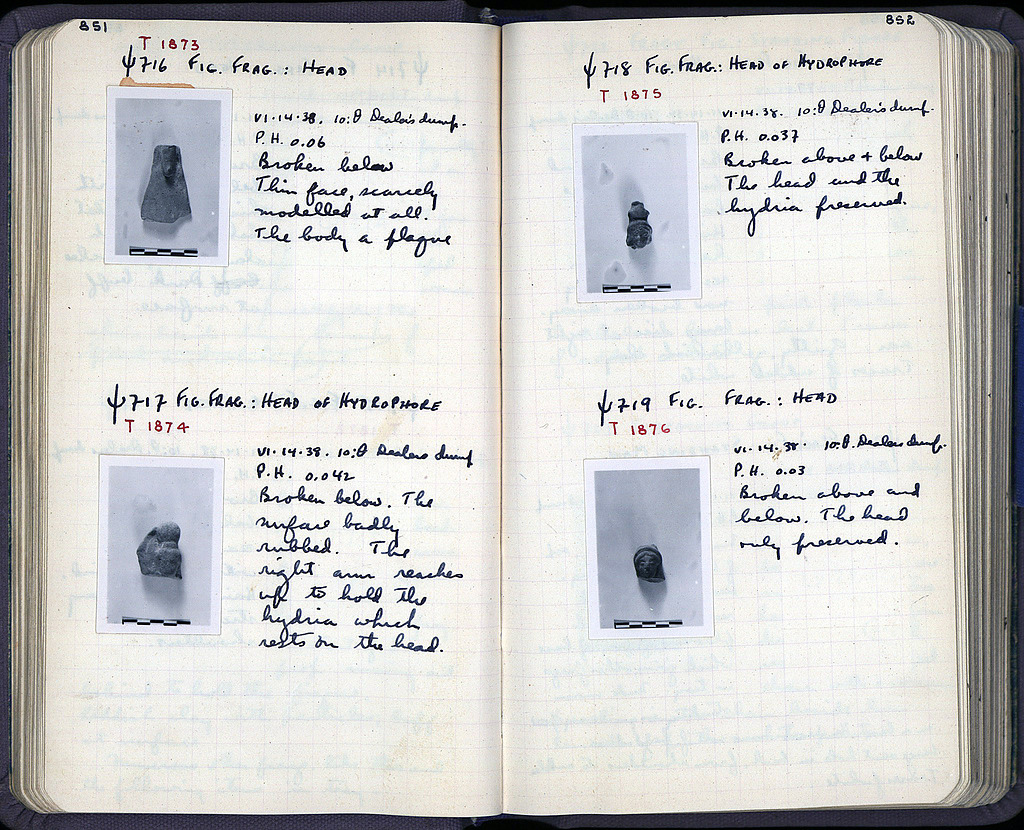 851
T 1873
ψ716 FIG. FRAG.: HEAD
VI·14·38. 10:Θ Dealer's dump.
P.H. 0.06
Broken below
Thin face, scarcely
modelled at all.
The body a plaque
ψ717 FIG. FRAG.: HEAD OF HYDROPHORE
T 1874
VI·14·38. 10:Θ Dealers dump
P.H. 0.042
Broken below. The
surface badly
rubbed. The
right arm reaches
up to hold the
hydria which
rests on the head.
852
ψ718 FIG. FRAG.: HEAD OF HYDROPHORE
T 1875
VI·14·38. 10:Θ Dealer's dump.
P.H. 0.037
Broken above + below
The head and the
hydria preserved.
ψ719 FIG. FRAG.: HEAD
T 1876
VI·14·38. 10:Θ. Dealers dump.
P.H. 0.03
Broken above and
below. The head
only preserved.